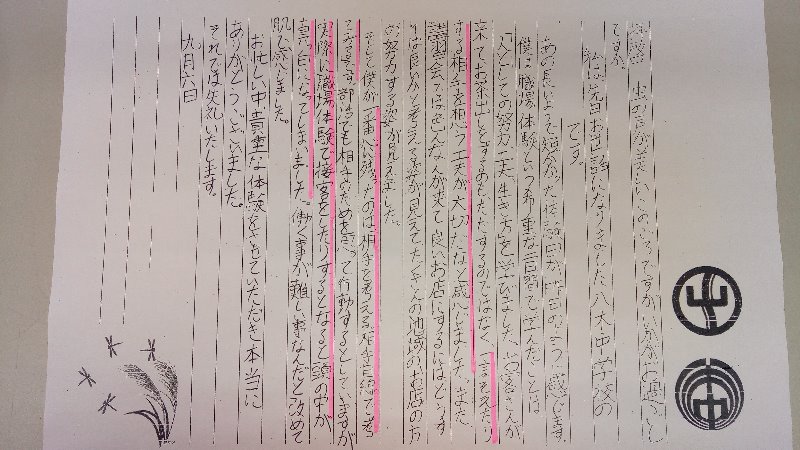 拝啓 虫の音が美しいこのごろですが、いかがお過ごし
ですか。
私は先日お世話になりました八大中学校の
です。
あの長いようで短かった体験日が昨日のように感じます。
僕は職場体験という希重な官習で学んだことは
人としての努力、工夫、生き方を学びました。お客さんが
来てお茶出しとずすあもたたするのではなく、一言そえたり
する相手を想う工夫が大切だなと感じました。また、
講習会では色んな人が来て良いお店にするにはどうす
れば良いかと考える姿が見えてたくさんの地域のお店の方
の努力する姿が見えました。
そして僕が一番心に残ったのは「相手を考える、相手目線で考え
てみる」です。部活でも相手のためを思って行動するとしていますが
実際に職場体験で接客をしたりするとなると頭の中が
真っ白になってしまいました。働く事が難しい事なんだと改めて
肌で感じました。
お忙しい中貴重な体験をさせていただき本当に
ありがとうございました。
それでは失礼いたします。
九月六日